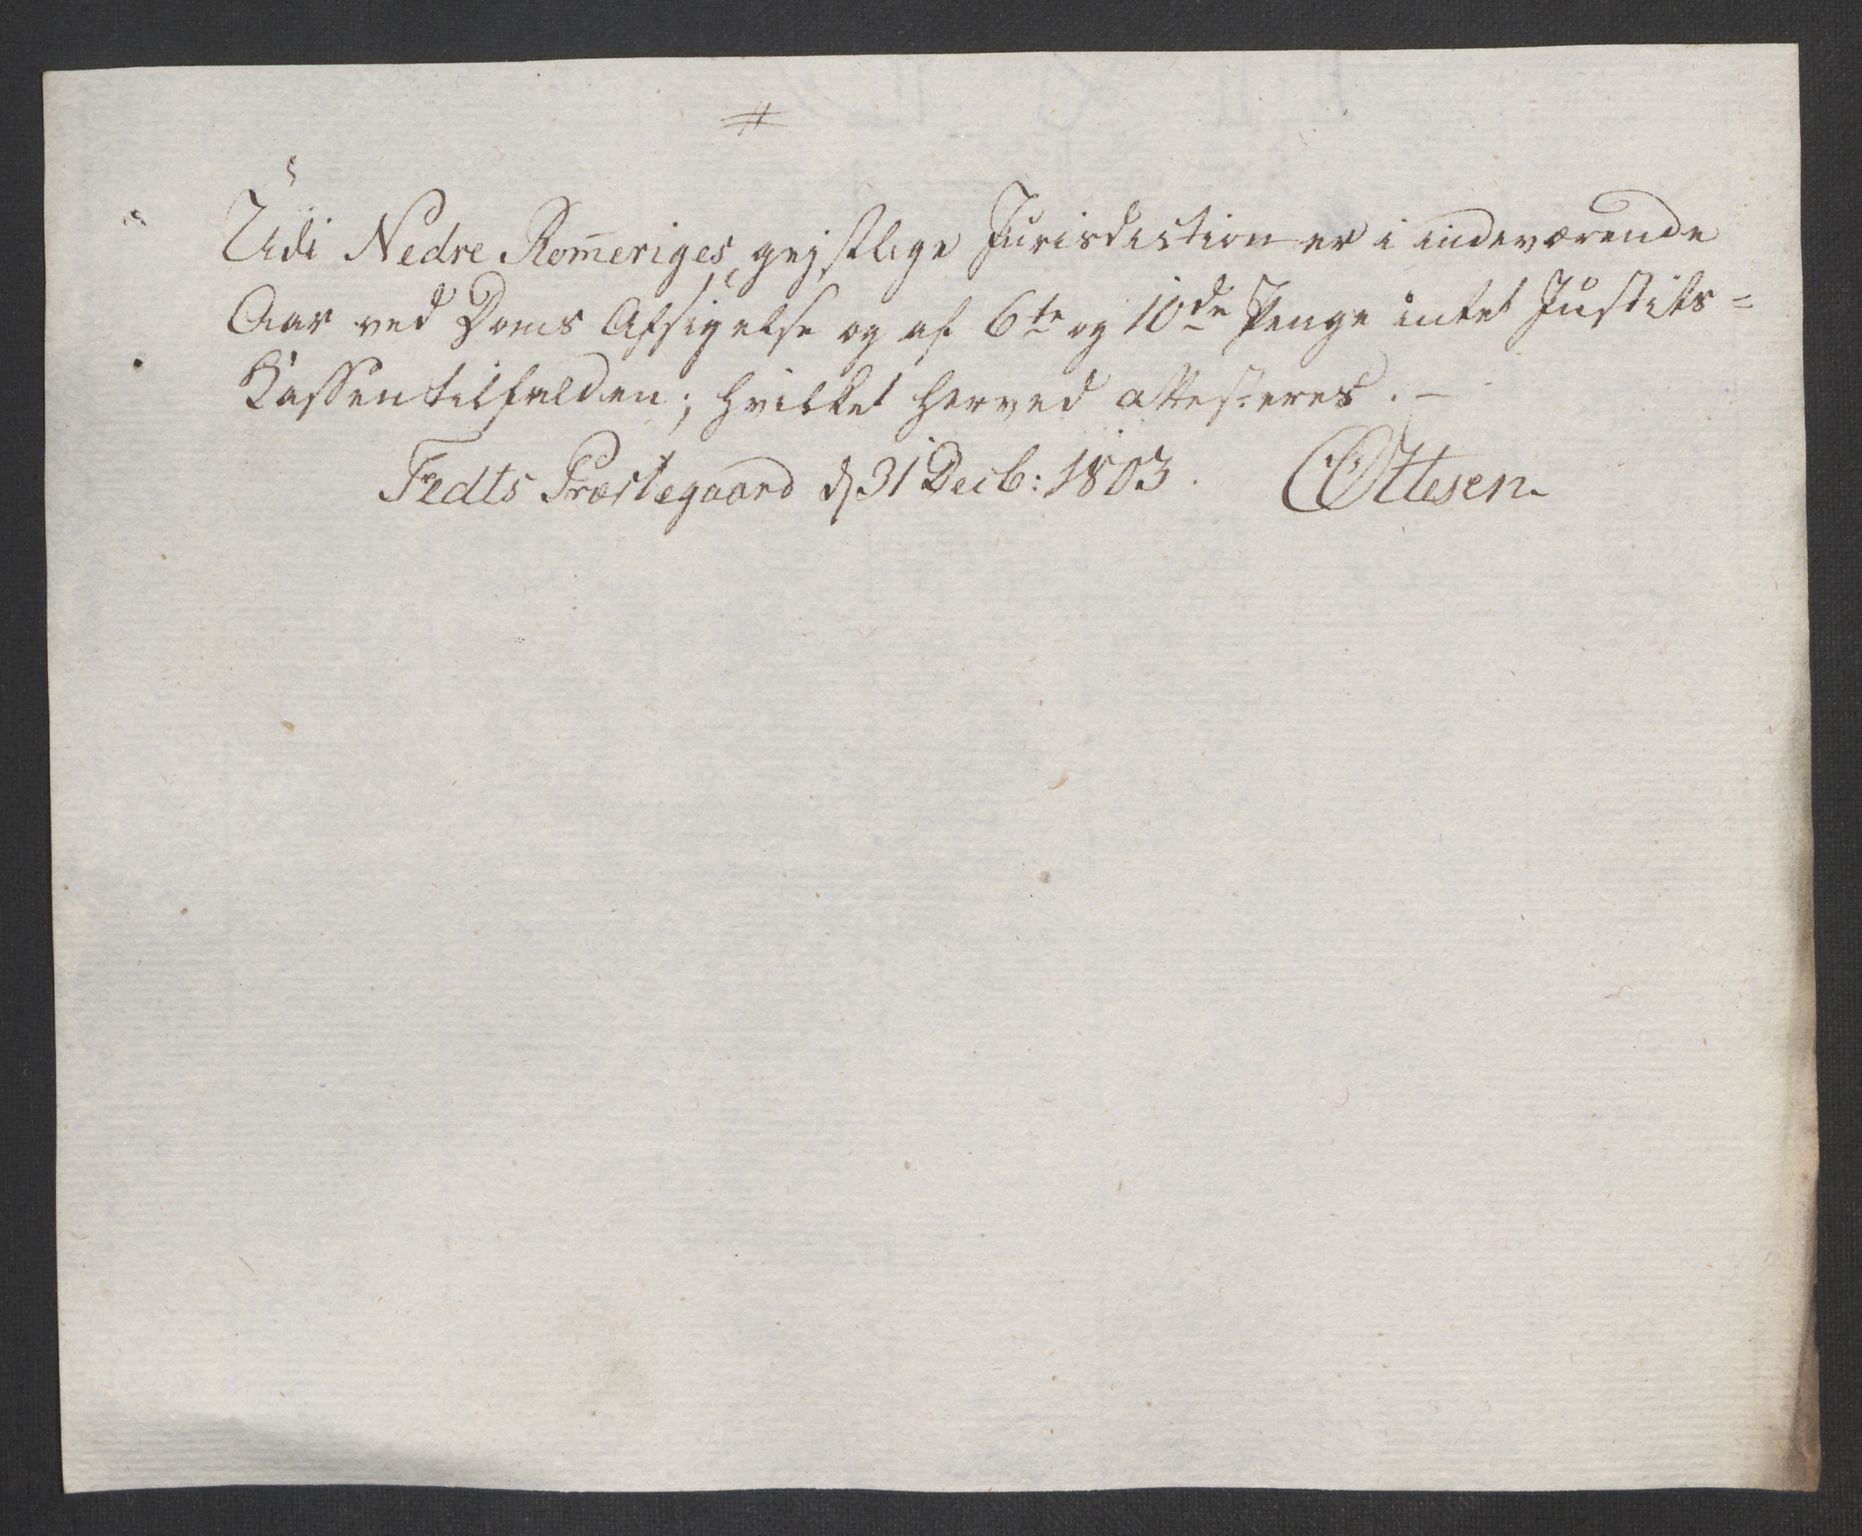 #
Udi Nedre Rom̄eriges gejstlige Jurisdiction er i indeværende
Aar ved Doms Afsigelse og af 6te og 10de Penge intet Justits=
Kassen tilfalden; hvilket herved attesteres. —
Fedts Præstegaard d 31 Decb: 1803. COttesen.